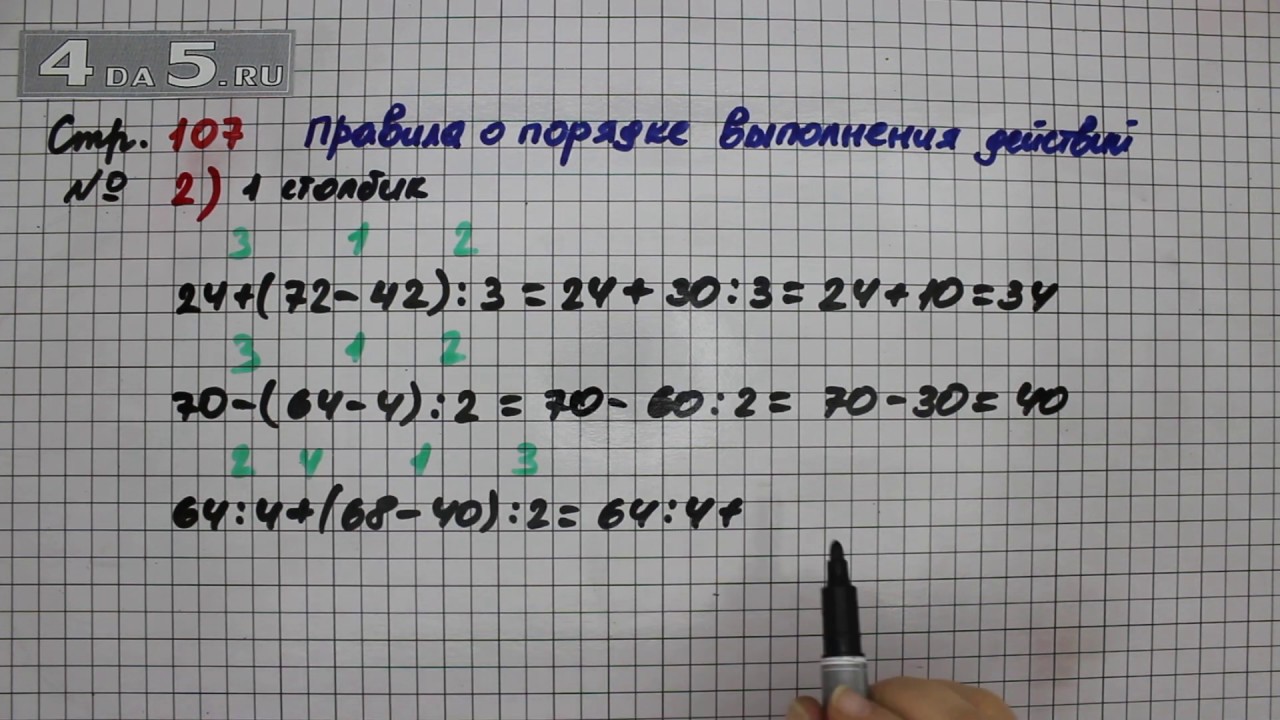 4 DA 5.RU
Стр. 107 Правила о порядке выполнения действий
№ 2) 1 столбик
3 1 2
24+(72-42):3=24+30:3=24+10=34
3 1 2
70-(64-4):2=70-60:2=70-30=40
2 4 1 3
64:4+(68-40):2=64:4+